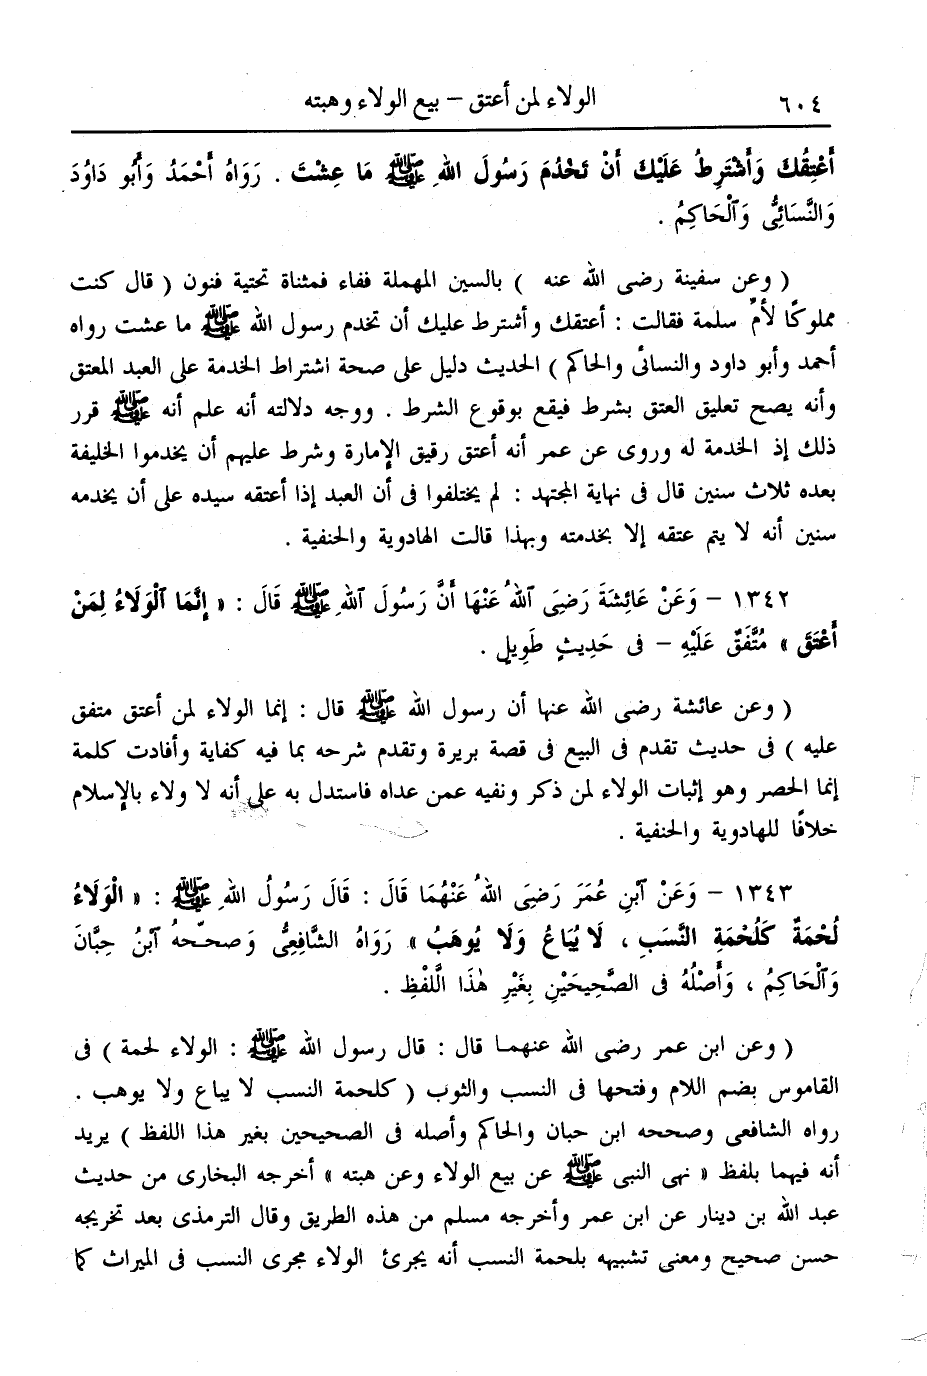 ٦٠٤ الولاء لمن أعتق – بيع الولاء وهبته
أَعْتِقُكَ وَأَشْتَرِطُ عَلَيْكَ أَنْ تَخْدُمَ رَسُولَ اللهِ ﷺ مَا عِشْتَ . رَوَاهُ أَحْمَدُ وَأَبُو دَاوُدَ
وَالنَّسَائِىُّ وَٱلْحَاكِمُ .
( وعن سفينة رضى الله عنه ) بالسين المهملة ففاء فمثناة تحتية فنون ( قال كنت
مملوكًا لأمِّ سلمة فقالت : أعتقك وأشترط عليك أن تخدم رسول الله ﷺ ما عشت رواه
أحمد وأبو داود والنسائى والحاكم ) الحديث دليل على صحة اشتراط الخدمة على العبد المعتق
وأنه يصح تعليق العتق بشرط فيقع بوقوع الشرط . ووجه دلالته أنه علم أنه ﷺ قرر
ذلك إذ الخدمة له وروى عن عمر أنه أعتق رقيق الإمارة وشرط عليهم أن يخدموا الخليفة
بعده ثلاث سنين قال فى نهاية المجتهد : لم يختلفوا فى أن العبد إذا أعتقه سيده على أن يخدمه
سنين أنه لا يتم عتقه إلا بخدمته وبهذا قالت الهادوية والحنفية .
١٣٤٢ – وَعَنْ عَائِشَةَ رَضِىَ ٱللهُ عَنْهَا أَنَّ رَسُولَ ٱللهِ ﷺ قَالَ : « إِنَّمَا ٱلْوَلَاءُ لِمَنْ
أَعْتَقَ » مُتَّفَقٌ عَلَيْهِ – فى حَدِيثٍ طَوِيلٍ .
( وعن عائشة رضى الله عنها أن رسول الله ﷺ قال : إنما الولاء لمن أعتق متفق
عليه ) فى حديث تقدم فى البيع فى قصة بريرة وتقدم شرحه بما فيه كفاية وأفادت كلمة
إنما الحصر وهو إثبات الولاء لمن ذكر ونفيه عمن عداه فاستدل به على أنه لا ولاء بالإسلام
خلافًا للهادوية والحنفية .
١٣٤٣ – وَعَنْ ٱبْنِ عُمَرَ رَضِىَ اللهُ عَنْهُمَا قَالَ : قَالَ رَسُولُ اللهِ ﷺ : « الْوَلَاءُ
لُحْمَةٌ كَلُحْمَةِ النَّسَبِ ، لَا يُبَاعُ وَلَا يُوهَبُ » رَوَاهُ الشَّافِعِىُّ وَصحّحهُ ٱبْنُ حِبَّانَ
وَٱلْحَاكِمُ ، وَأَصْلُهُ فى الصَّحِيحَيْنِ بِغَيْرِ هٰذَا الَّلفْظِ .
( وعن ابن عمر رضى الله عنهما قال : قال رسول الله ﷺ : الولاء لحمة ) فى
القاموس بضم اللام وفتحها فى النسب والثوب ( كلحمة النسب لا يباع ولا يوهب .
رواه الشافعى وصححه ابن حبان والحاكم وأصله فى الصحيحين بغير هذا اللفظ ) يريد
أنه فيهما بلفظ « نهى النبى ﷺ عن بيع الولاء وعن هبته » أخرجه البخارى من حديث
عبد الله بن دينار عن ابن عمر وأخرجه مسلم من هذه الطريق وقال الترمذى بعد تخريجه
حسن صحيح ومعنى تشبيهه بلحمة النسب أنه يجرئ الولاء مجرى النسب فى الميراث كما